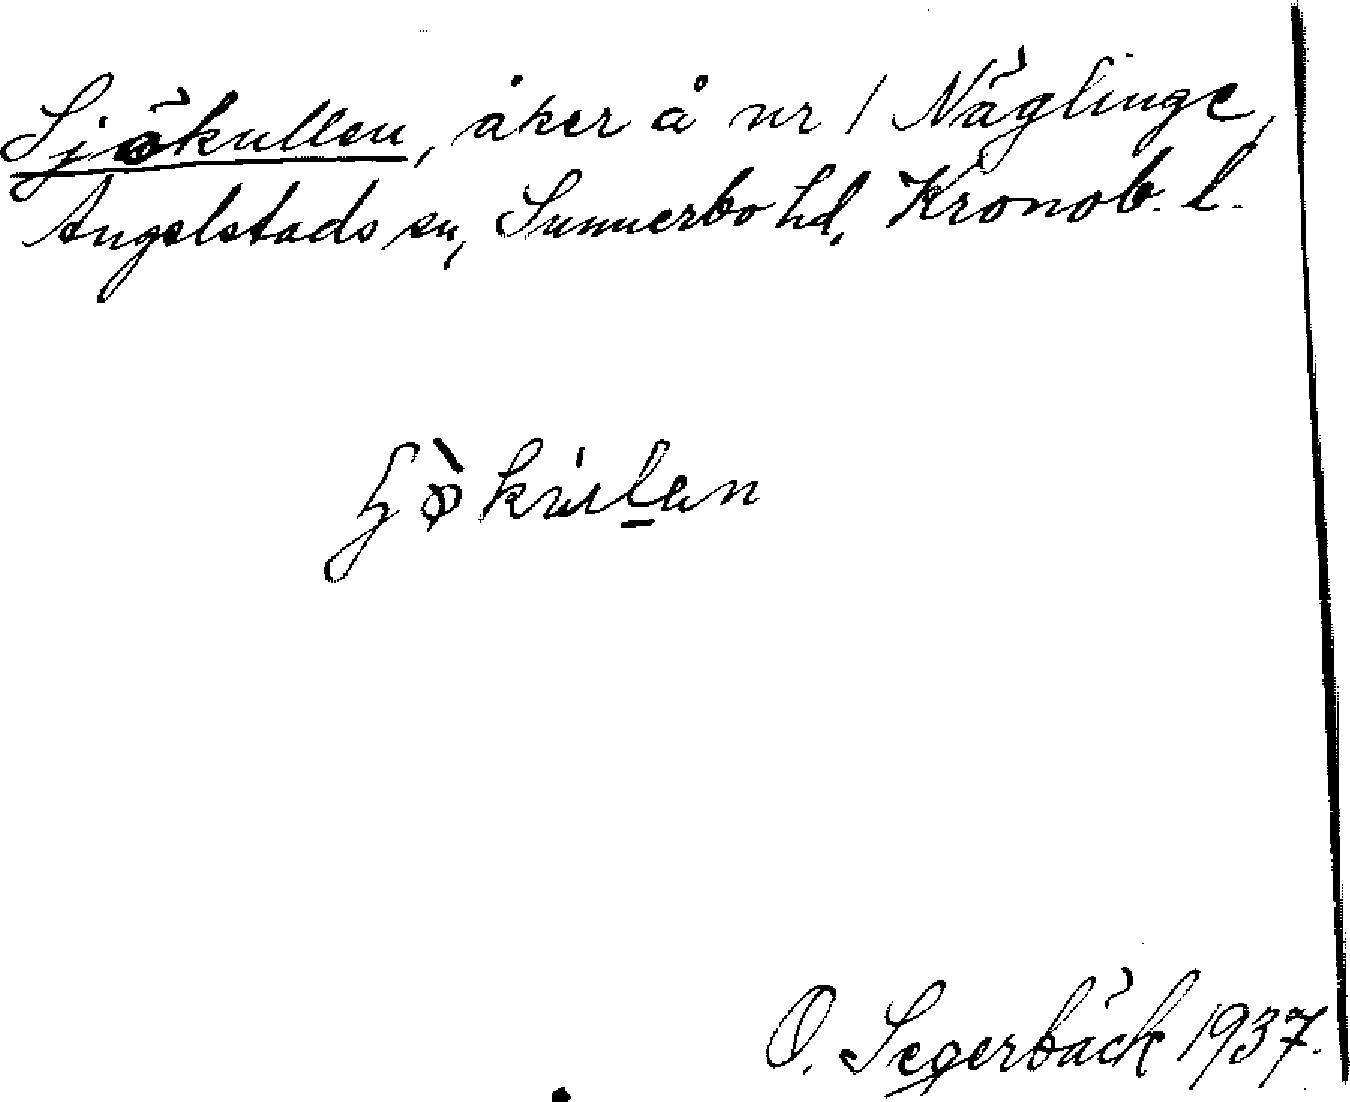 Sjökullen, åker å nr 1 Näglinge,
Angelstads sn, Sunnerbo hd, Kronob. l.
O. Segerbäck 1937.